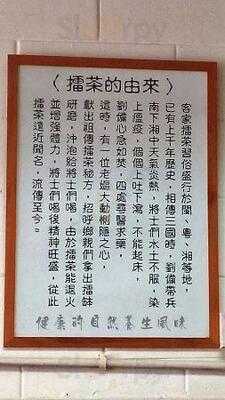 〈擂茶的由來〉
客家擂茶習俗盛行於閩、粵、湘等地，
已有上千年歷史，相傳三國時，劉備帶兵
南下湘中天氣炎熱，將士們水土不服，染
上瘟疫，個個上吐下瀉，不能起床，
劉備心急如焚，四處尋醫求藥，
這時，有一位老嫗大動惻隱之心，
獻出祖傳擂茶秘方，招呼鄉親們拿出擂缽
研磨，沖泡給將士們喝，由於擂茶能退火
並增強體力，將士們喝後精神旺盛，從此
擂茶遠近聞名，流傳至今。
健康的自然養生風味